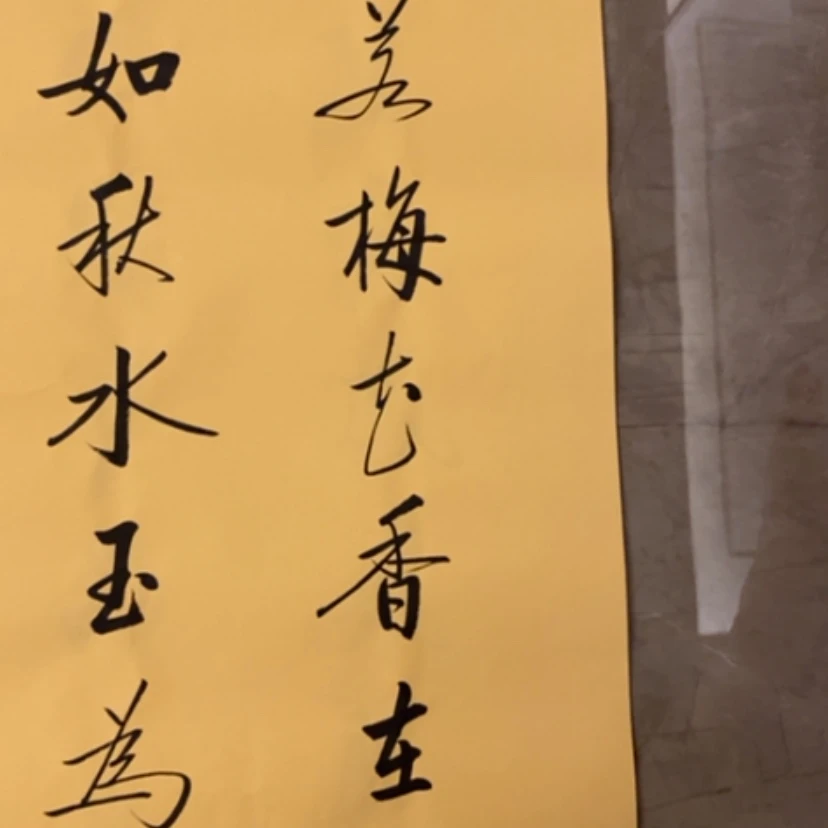 若梅花香在
如秋水玉為